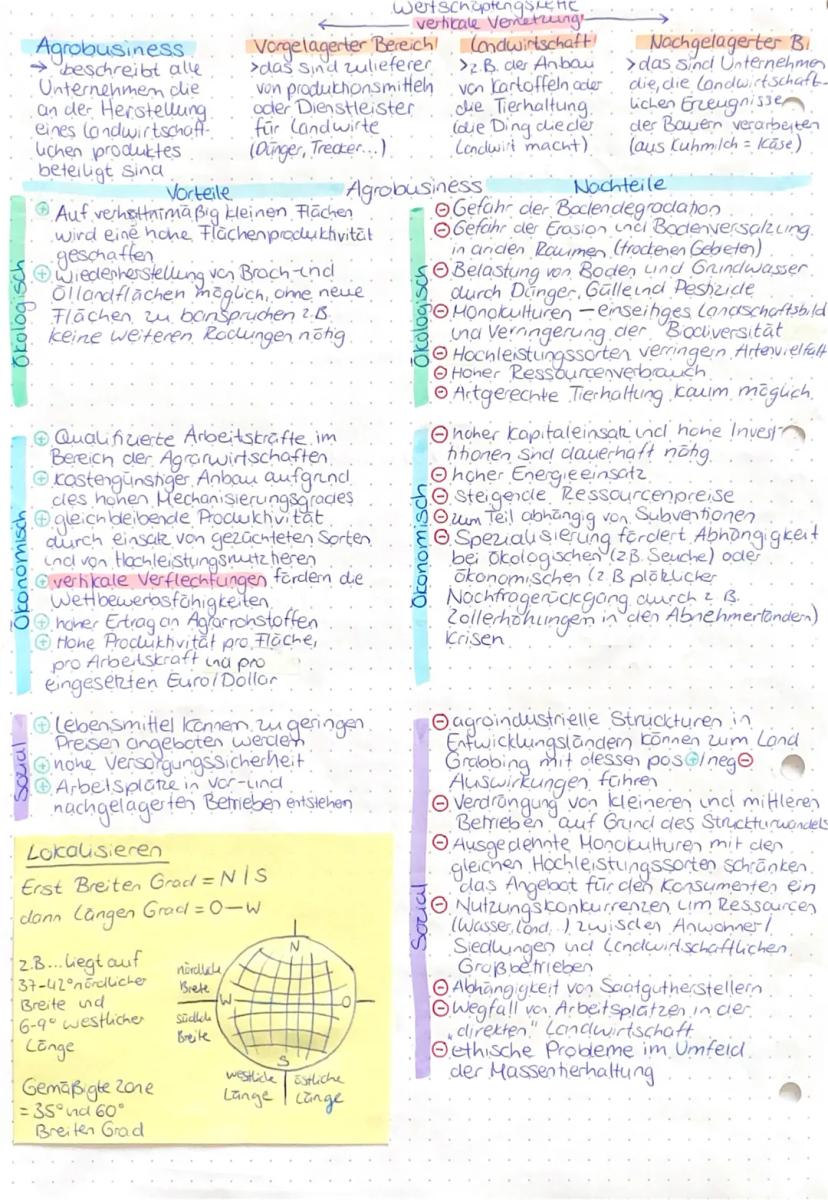 Wertschöpfungskette
vertikale Vernetzung
Agrobusiness
→ beschreibt alle
Unternehmen die
an der Herstellung
eines landwirtschaft-
lichen produktes
beteiligt sind
Vorgelagerter Bereich
>das sind zulieferer
von produktionsmitteln
oder Dienstleister
für Landwirte
(Dünger, Trecker...)
Landwirtschaft
>z.B. der Anbau
von Kartoffeln oder
die Tierhaltung
(die Ding die der
Landwirt macht)
Nachgelagerter B
>das sind Unternehmen
die, die Landwirtschaft-
lichen Erzeugnisse
der Bauern verarbeiten
(aus Kuhmilch = Käse)
Vorteile Agrobusiness Nachteile
Ökologisch
⊕ Auf verhältnimäßig kleinen Flächen
wird eine hohe Flächenproduktivität
geschaffen
⊕ Wiederherstellung von Brach-und
Öllandflächen möglich, ohne neue
Flächen zu banspruchen z.B.
keine weiteren Rodungen nötig
Ökologisch
⊖ Gefahr der Bodendegradation
⊖ Gefahr der Erosion und Bodenversalzung
in ariden Räumen (trockenen Gebieten)
⊖ Belastung von Boden und Grundwasser
durch Dünger, Gülle und Pestizide
⊖ Monokulturen – einseitiges Landschaftsbild
und Verringerung der Biodiversität
⊖ Hochleistungssorten verringern Artenvielfalt
⊖ Hoher Ressourcenverbrauch
⊖ Artgerechte Tierhaltung kaum möglich
Ökonomisch
⊕ Qualifizierte Arbeitskräfte im
Bereich der Agrarwirtschaften
⊕ kostengünstiger Anbau aufgrund
des hohen Mechanisierungsgrades
⊕ gleichbleibende Produktivität
durch einsatz von gezüchteten Sorten
und von Hochleistungsnutztieren
⊕ vertikale Verflechtungen fördern die
Wettbewerbsfähigkeiten
⊕ hoher Ertrag an Agrarrohstoffen
⊕ Hohe Produktivität pro Fläche,
pro Arbeitskraft und pro
eingesetzten Euro/Dollar
Ökonomisch
⊖ hoher Kapitaleinsatz und hohe Invest-
itionen sind dauerhaft nötig
⊖ hoher Energieeinsatz
⊖ steigende Ressourcenpreise
⊖ zum Teil abhängig von Subventionen
⊖ Spezialisierung fördert Abhängigkeit
bei ökologischen (z.B. Seuche) oder
ökonomischen (z.B plötzlicher
Nachfragerückgang durch z.B.
Zollerhöhungen in den Abnehmerländern)
Krisen
Sozial
⊕ Lebensmittel können zu geringen
Preisen angeboten werden
⊕ hohe Versorgungssicherheit
⊕ Arbeitsplätze in vor-und
nachgelagerten Betrieben entstehen
Sozial
⊖ agroindustrielle Struckturen in
Entwicklungsländern können zum Land
Grabbing mit dessen pos⊕/neg⊖
Auswirkungen führen
⊖ Verdrängung von kleineren und mittleren
Betrieben auf Grund des Strukturwandels
⊖ Ausgedehnte Monokulturen mit den
gleichen Hochleistungssorten schränken
das Angebot für den Konsumenten ein
⊖ Nutzungskonkurrenzen um Ressourcen
(Wasser, Land...) zwischen Anwohner/
Siedlungen und Landwirtschaftlichen
Großbetrieben
⊖ Abhängigkeit von Saatgutherstellern
⊖ Wegfall von Arbeitsplätzen in der
„direkten" Landwirtschaft
⊖ ethische Probleme im Umfeld
der Massentierhaltung
Lokalisieren
Erst Breiten Grad = N | S
dann Längen Grad = O–W
z.B...liegt auf
37-42° nördlicher
Breite und
6-9° westlicher
Länge
Gemäßigte Zone
= 35° und 60°
Breiten Grad
nördliche
Breite
südliche
Breite
N
W
O
S
westliche
Länge
östliche
Länge